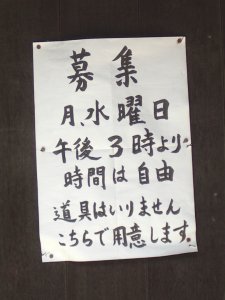 募集
月、水曜日
午後3時より
時間は自由
道具はいりません
こちらで用意します